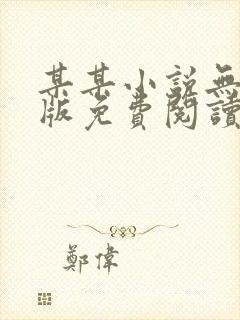 某某小說無
版免費閱讀
鄭偉